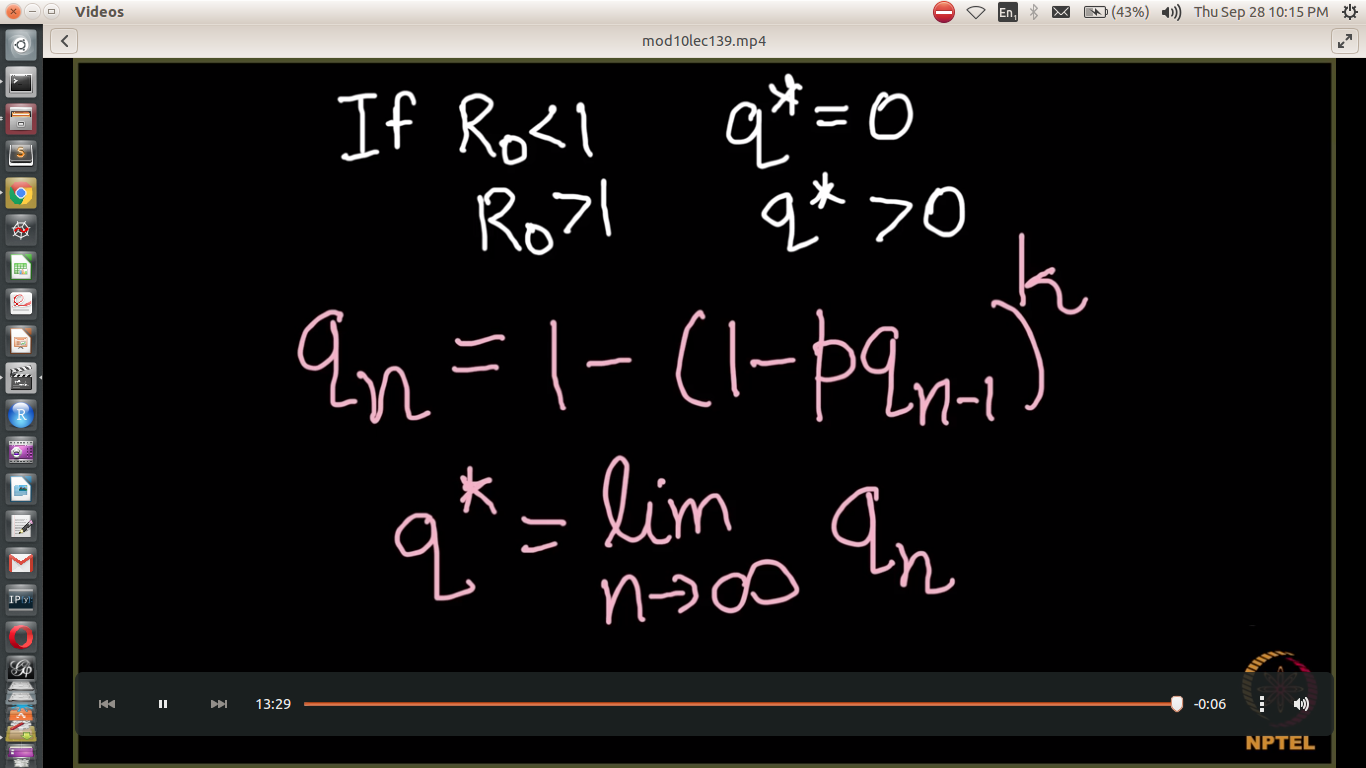 Videos
En₁
(43%)
Thu Sep 28 10:15 PM
mod10lec139.mp4
If R₀<1 q*=0
R₀>1 q*>0
qₙ = 1-(1-pqₙ₋₁)ᵏ
q* = lim qₙ
n→∞
13:29
-0:06
NPTEL